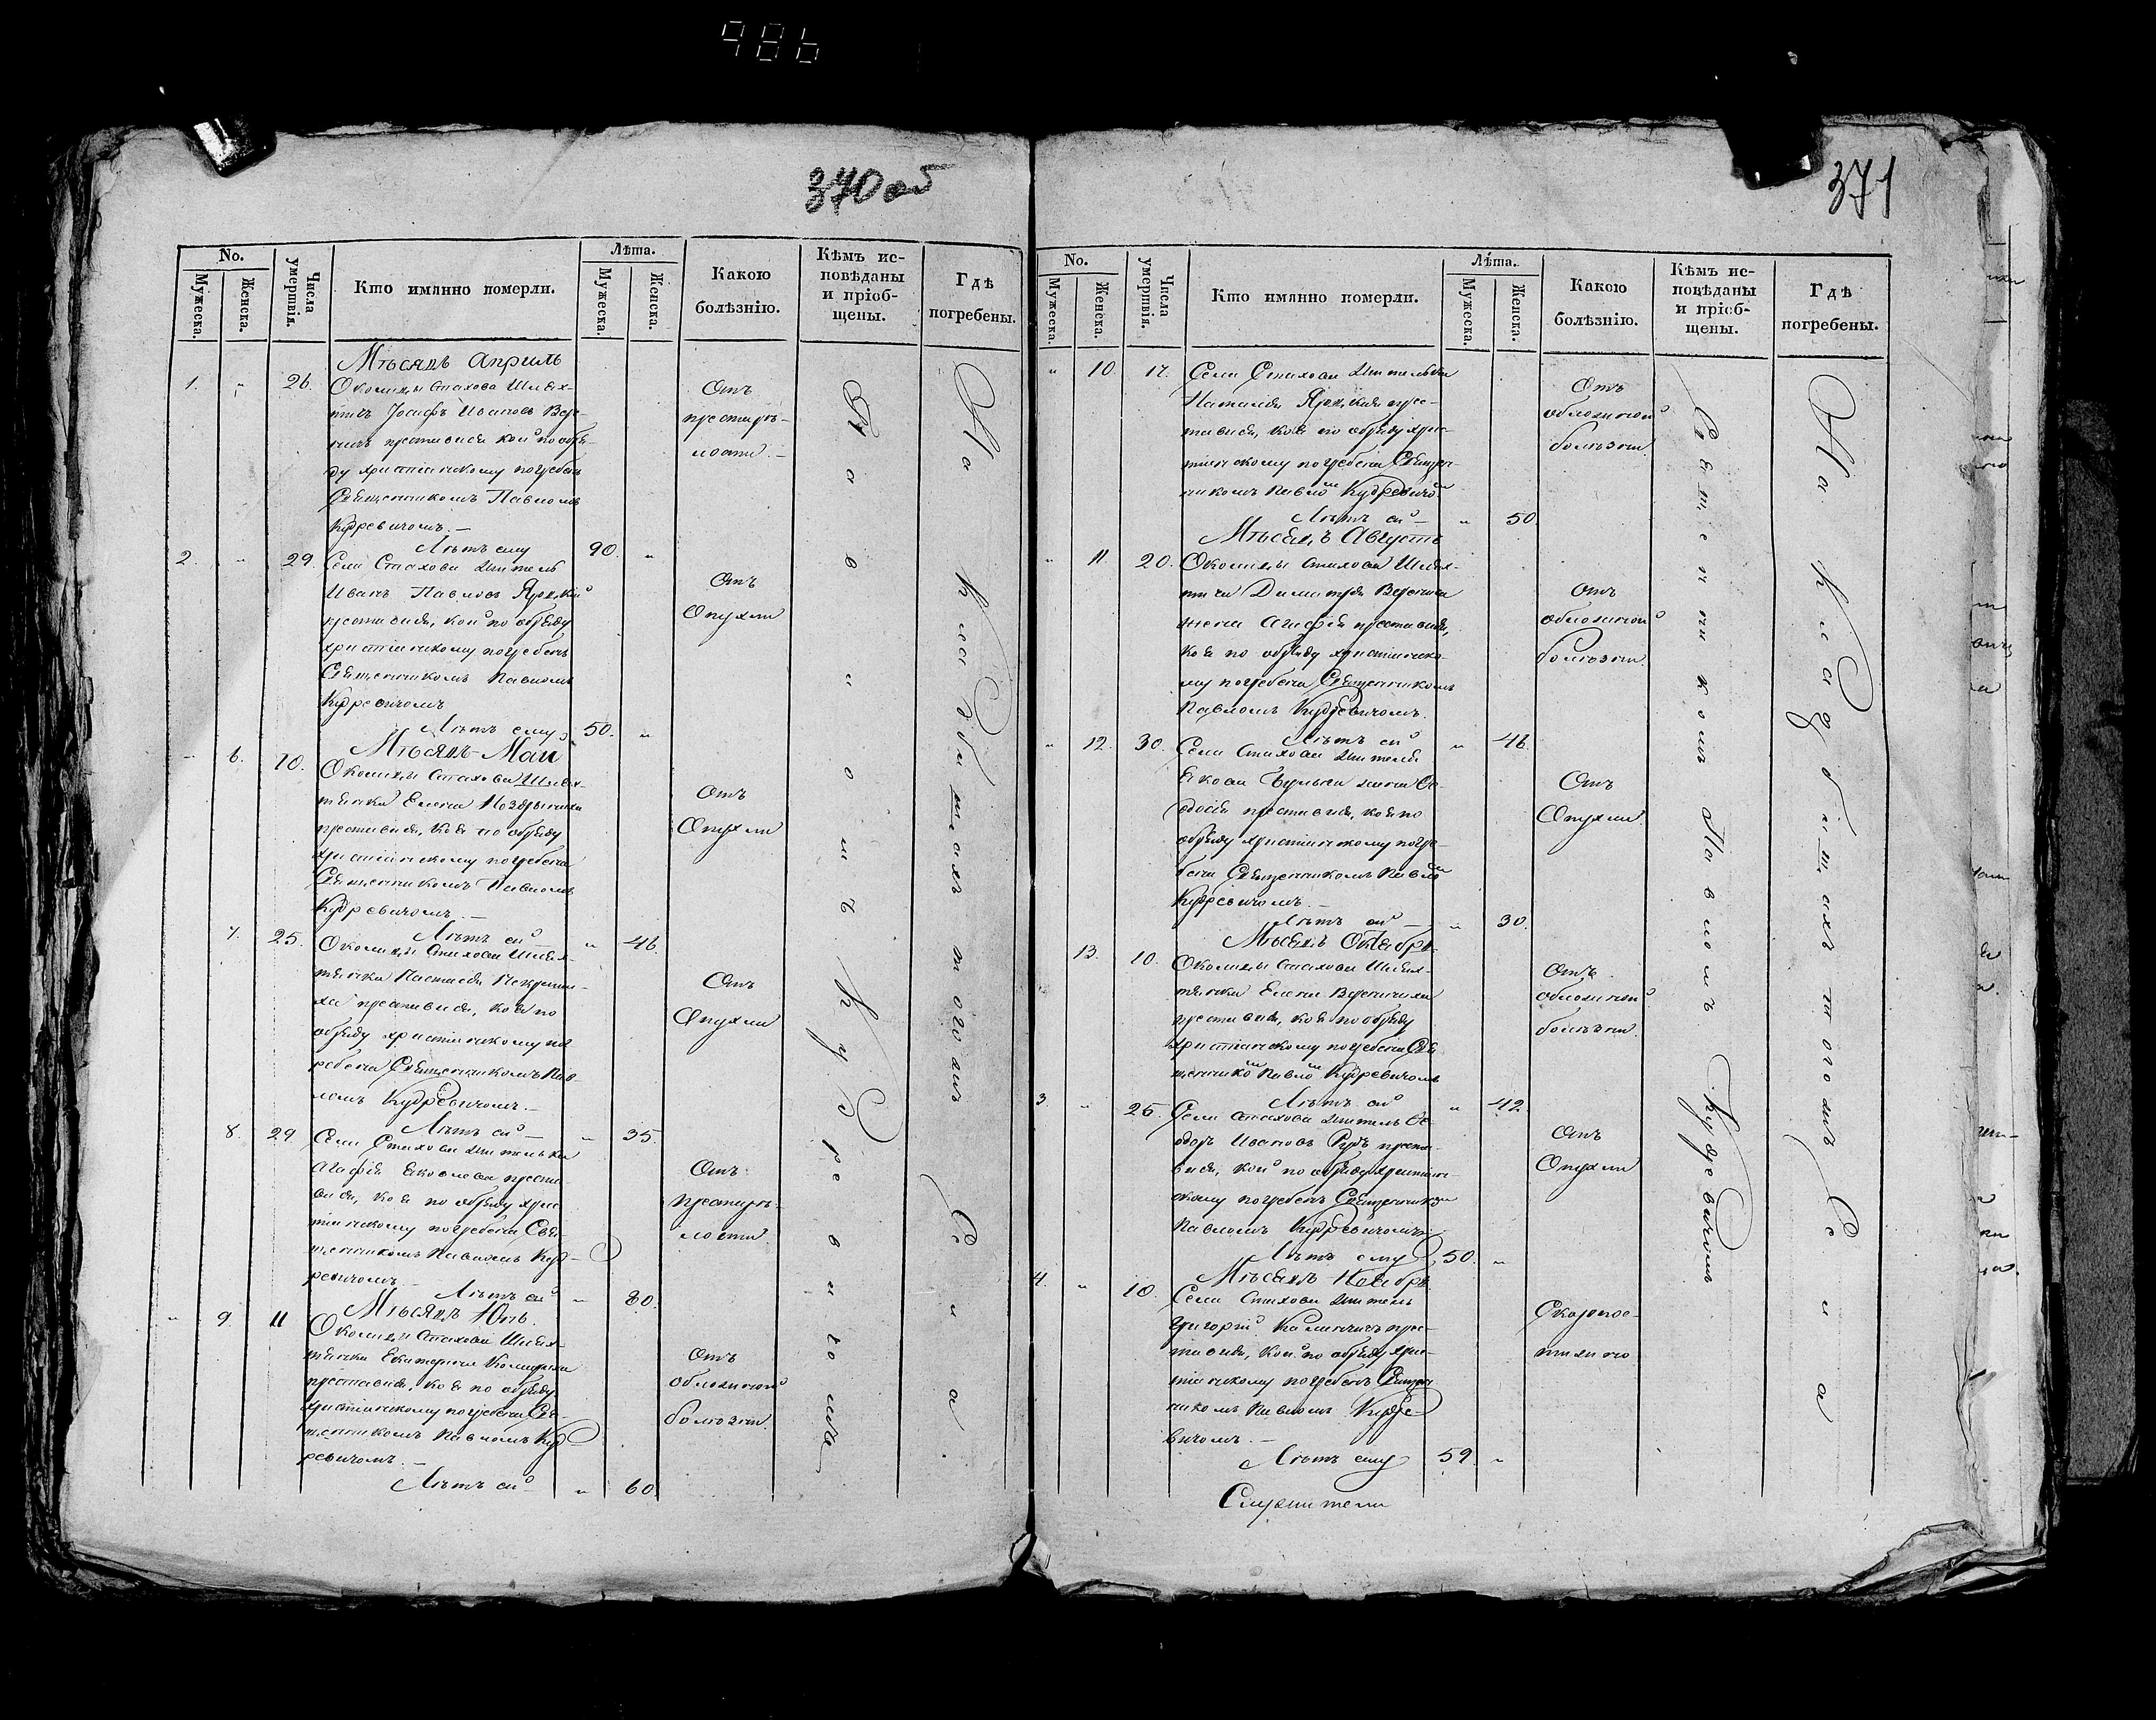 986
370 об
No.
Мужеска.
Женска.
Числа умершвія.
Кто имянно померли.
Лѣта.
Мужеска.
Женска.
Какою болѣзнію.
Кѣмъ исповѣданы и пріобщены.
Гдѣ погребены.
Мѣсяцъ Априль
1. " 26. Околицы Стахова Шлях-
тичъ Іосифъ Ивановъ Вере-
ничъ преставися кой по обря-
ду христіанскому погребенъ
Священникомъ Павломъ
Кудревичомъ. —
Лѣтъ ему 90. "
Отъ
престарѣ-
лости. —
2. " 29. Села Стахова житель
Иванъ Павловъ Яроцкій
преставися, кой по обряду
христіанскому погребенъ
Священникомъ Павломъ
Кудревичомъ
Лѣтъ ему 50. "
Отъ
Опухли
Мѣсяцъ Маи
" 6. 10. Околицы Стахова Шлях-
тянка Елена
преставися, коя по обряду
христіанскому погребена
Священникомъ Павломъ
Кудревичомъ. —
Лѣтъ ей " 46.
Отъ
Опухли
7. 25. Околицы Стахова Шлях-
тянка Настасія
преставися, коя по
обряду христіанскому пог-
ребена Священникомъ Пав-
ломъ Кудревичомъ. —
Лѣтъ ей — " 35.
Отъ
Опухли
8. 29. Села Стахова жителька
Агафія Яковлева преста-
вися, коя по обряду хрис-
тіанскому погребена Свя-
щенникомъ Павломъ Куд-
ревичомъ. —
Лѣтъ ей " 80.
Отъ
престарѣ-
лости
Мѣсяцъ Юнь.
" 9. 11 Околицы Стахова Шлях-
тянка Екатерина
преставися, коя по обряду
христіанскому погребена Свя-
щенникомъ Павломъ Куд-
ревичомъ. —
Лѣтъ ей " 60.
Отъ
обложной
болѣзни
Священникомъ Павломъ Кудревичомъ
На кладбищахъ тогожъ Села
371
No.
Мужеска.
Женска.
Числа умершвія.
Кто имянно померли.
Лѣта.
Мужеска.
Женска.
Какою болѣзнію.
Кѣмъ исповѣданы и пріобщены.
Гдѣ погребены.
" 10. 17. Села Стахова жителька
Наталія Яроцкая прес-
тавися, коя по обряду хрис-
тіанскому погребена Священ-
никомъ Павломъ Кудревичомъ
Лѣтъ ей — " 50.
Отъ
обложной
болѣзни
Мѣсяцъ Августъ
" 11. 20. Околицы Стахова Шлях-
тича Димитрія Веренича
жена Агафія преставися,
коя по обряду христіанско-
му погребена Священникомъ
Павломъ Кудревичомъ.
Лѣтъ ей " 46.
Отъ
обложной
болѣзни
" 12. 30. Села Стахова жителя
Якова жена Ѳе-
одосія преставися, коя по
обряду христіанскому погре-
бена Священникомъ Павломъ
Кудревичомъ. —
Лѣтъ ей — " 30.
Отъ
Опухли
Мѣсяцъ Октябрь
13. 10. Околицы Стахова Шлях-
тянка Елена Вереничиха
преставися, коя по обряду
христіанскому погребена Свя-
щенникомъ Павломъ Кудревичомъ
Лѣтъ ей " 42.
Отъ
обложной
болѣзни
3. " 25. Села Стахова житель Ѳе-
одоръ Ивановъ преста-
вися, кой по обряду христіан-
скому погребенъ Священникомъ
Павломъ Кудревичомъ
Лѣтъ ему 50. "
Отъ
Опухли
Мѣсяцъ Ноябрь
4. " 10. Села Стахова житель
Григорій прес-
тавися, кой по обряду хрис-
тіанскому погребенъ Священ-
никомъ Павломъ Кудре-
вичомъ. —
Лѣтъ ему 59. "
Скоропос-
тижно
Священникомъ Павломъ Кудревичомъ
На кладбищахъ тогожъ Села
Служители